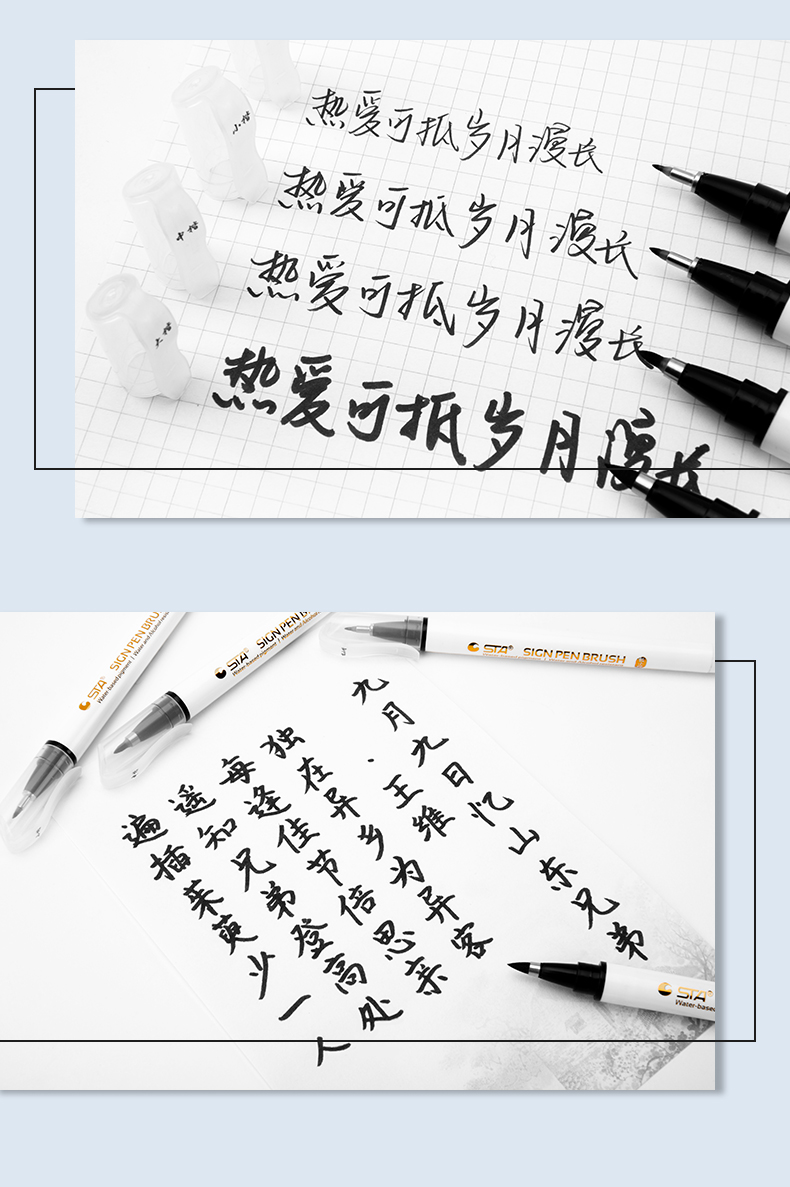 小楷
中楷
大楷
热爱可抵岁月漫长
热爱可抵岁月漫长
热爱可抵岁月漫长
热爱可抵岁月漫长
STA® SIGN PEN BRU
Water based pigment | Water and Alcohol
STA® SIGN PEN
Water-based pigment | Water and Alcohol
STA® SIGN PEN BRUSH
九月九日忆山东兄弟
·王维
独在异乡为异客
每逢佳节倍思亲
遥知兄弟登高处
遍插茱萸少一人
STA®
Water-based